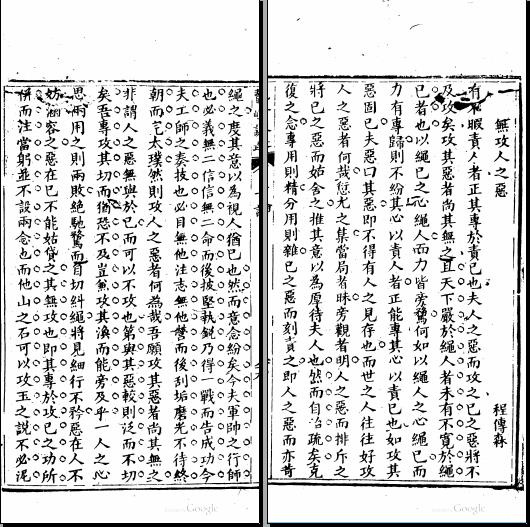 無攻人之惡
程傳
有不暇責人者正其專於責己也夫人之惡而攻之己之惡將不
及攻矣攻其惡者尚其無之且天下嚴於繩人者未有不寬於繩
己者也以繩己之心繩人而力皆旁騖何如以繩人之心繩己而
力有專歸則不紛其心以責人者正能專其心以責己也如攻其
惡固已夫惡曰其惡即不得有人之見存也而世之人往往好攻
人之惡者何哉愆尤之集當局者昧旁觀者明人之惡而排斥之
將己之惡而姑舍之推其意以為厚待夫人也然而自治疏矣克
復之念專用則精分用則雜己之惡而刻責之即人之惡而亦苛
繩之度其意以為視人猶己也然而意念紛矣今夫軍帥之行師
也必義無二信信無二命而後披堅執銳乃得一戰而告成功今
夫工師之奏技也必目無他注志無他營而後刮垢磨光不待終
朝而完太璞然則攻人之惡者何為哉吾願攻其惡者尚其無之
非謂人之惡無與於己而可以不攻也第與其惡較則泛而不切
矣吾專攻其切而猶恐不及豈兼攻其渙而能旁及乎一人之心
思兩用之則兩敗絕馳騖而自切糾繩將見細行不矜惡在人不
妨涵容之惡在己不能姑貸之其無攻也即其專於攻己之功所
併而注當躬並不設兩念也而他山之石可以攻玉之說不必泥
Google
Google